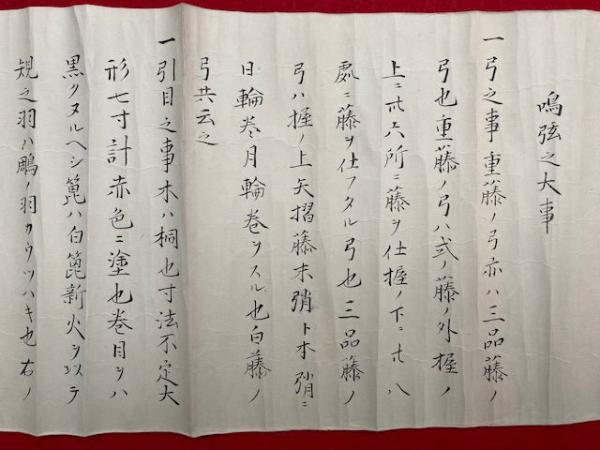 鳴弦之大事
一弓之事重藤ノ弓亦ハ三品藤ノ
弓也重藤ノ弓ハ式ノ藤ノ外握ノ
上ニ廿六所ニ藤ヲ仕握ノ下ニ廿八
処ニ藤ヲ仕フタル弓也三品藤ノ
弓ハ握ノ上矢摺藤末弰ト本弰ニ
日輪巻月輪巻ヲスル也白藤ノ
弓共云之
一引目之事木ハ桐也寸法不定大
形七寸計赤色ニ塗也巻目ヲハ
黒クヌルヘシ箆ハ白箆新火ヲ以テ
規之羽ハ鵰ノ羽カウツハキ也右ノ